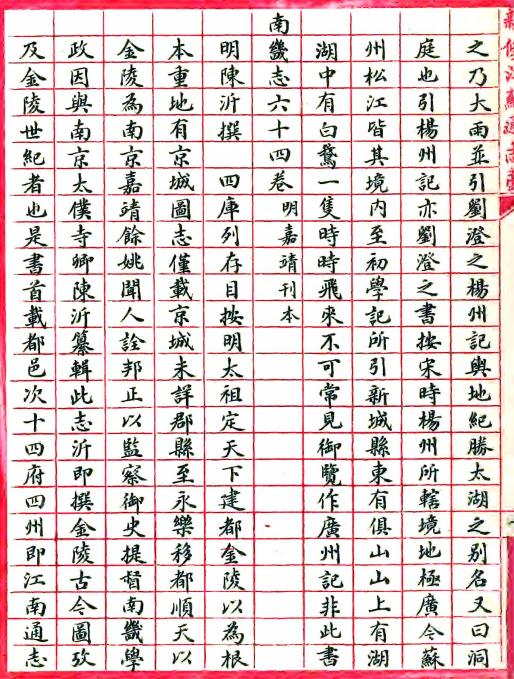 新修江蘇通志藁
之乃大雨並引劉澄之楊州記輿地紀勝太湖之別名又曰洞
庭也引楊州記亦劉澄之書按宋時楊州所轄境地極廣今蘇
州松江皆其境內至初學記所引新城縣東有俱山山上有湖
湖中有白鵞一隻時時飛來不可常見御覽作廣州記非此書
南畿志六十四卷 明嘉靖刊本
明陳沂撰 四庫列存目按明太祖定天下建都金陵以為根
本重地有京城圖志僅載京城未詳郡縣至永樂移都順天以
金陵為南京嘉靖餘姚聞人詮邦正以監察御史提督南畿學
政因與南京太僕寺卿陳沂纂輯此志沂即撰金陵古今圖攷
及金陵世紀者也是書首載都邑次十四府四州即江南通志